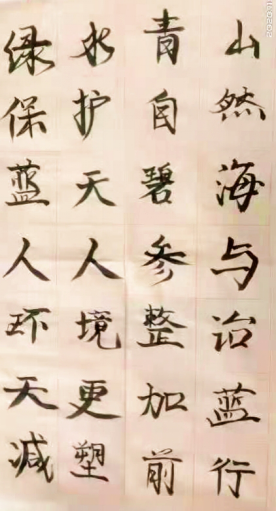 绿水青山
保护自然
蓝天碧海
人人参与
环境整治
天更加蓝
减塑前行